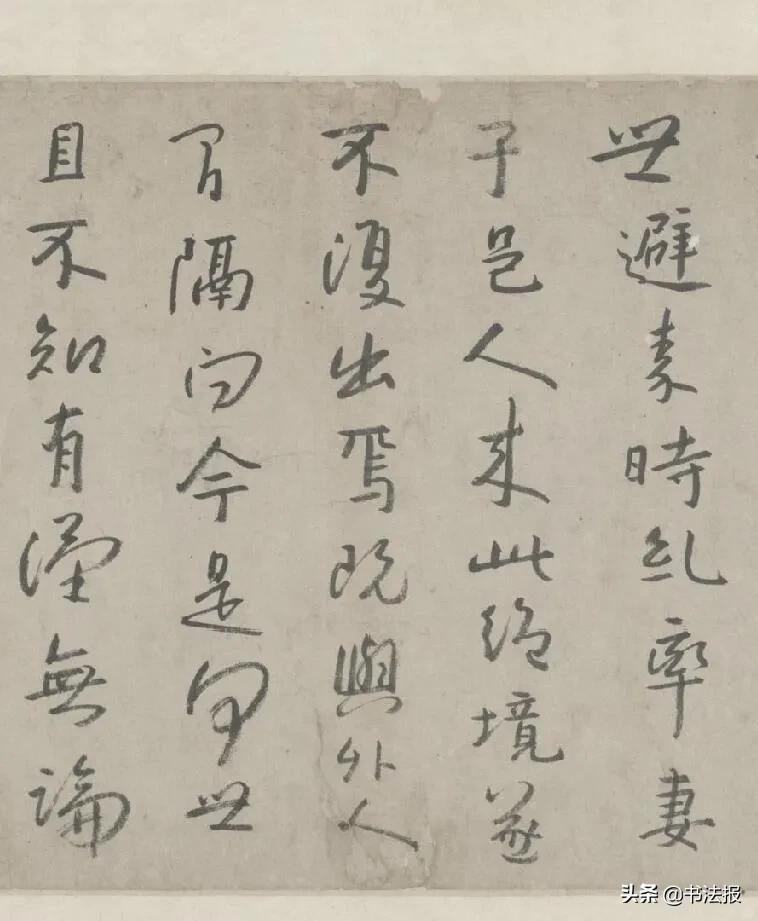 世避秦時乱率妻
子邑人来此絶境遂
不復出焉既與外人
間隔問今是何世
且不知有漢無論
头条 @书法报